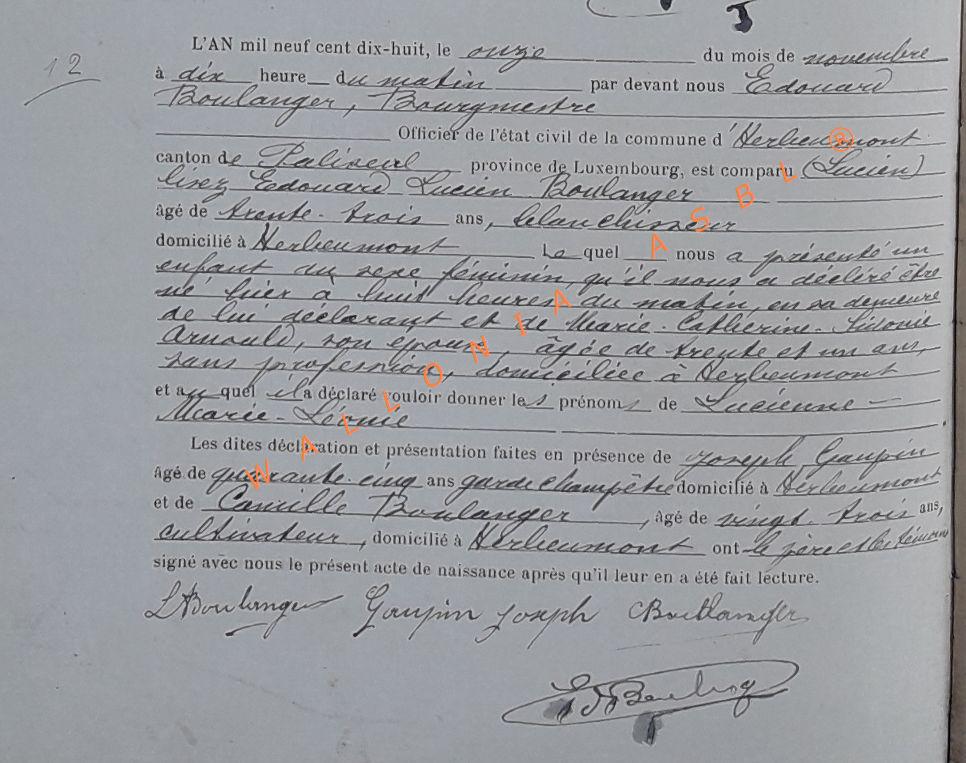 12
L'AN mil neuf cent dix-huit, le onze du mois de novembre
à dix heure du matin par devant nous Edouard
Boulanger, Bourgmestre
Officier de l'état civil de la commune d'Herbeumont
canton de Paliseul province de Luxembourg, est comparu (Lucien)
lisez Edouard Lucien Boulanger
âgé de trente-trois ans, blanchisseur
domicilié à Herbeumont Le quel nous a présenté un
enfant du sexe féminin, qu'il nous a déclaré être
né hier à huit heures du matin, en sa demeure
de lui déclarant et de Marie-Catherine-Sidonie
Arnould, son épouse, âgée de trente et un ans,
sans profession, domiciliée à Herbeumont
et au quel il a déclaré vouloir donner les prénoms de Lucienne-
Marie-Léonie
Les dites déclaration et présentation faites en présence de Joseph Gaupin
âgé de quarante-cinq ans garde champêtre domicilié à Herbeumont
et de Camille Boulanger, âgé de vingt-trois ans,
cultivateur, domicilié à Herbeumont ont le père et les témoins
signé avec nous le présent acte de naissance après qu'il leur en a été fait lecture.
LBoulanger Gaupin Joseph CBoulanger
WALLONIA ASBL ®